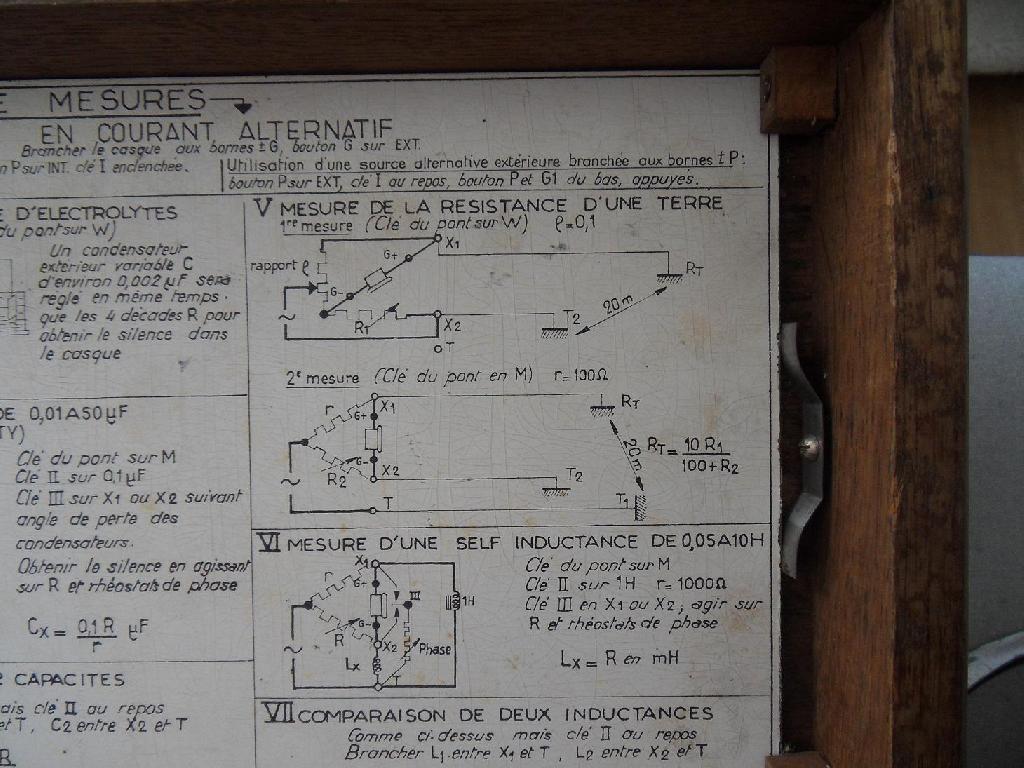 E MESURES
EN COURANT ALTERNATIF
Brancher le casque aux bornes ± G, bouton G sur EXT.
n P sur INT. clé I enclenchée.
Utilisation d'une source alternative extérieure branchée aux bornes ± P:
bouton P sur EXT, clé I au repos, bouton P et G1 du bas, appuyés.
E D'ELECTROLYTES
du pont sur W)
Un condensateur
extérieur variable C
d'environ 0,002 µF sera
reglé en même temps.
que les 4 décades R pour
obtenir le silence dans
le casque
DE 0,01A50µF
TY)
Clé du pont sur M
Clé II sur 0,1µF
Clé III sur X1 ou X2 suivant
angle de perte des
condensateurs.
Obtenir le silence en agissant
sur R et rhéostats de phase
Cx = 0,1 R / r µF
CAPACITES
ais clé II au repos
et T, C2 entre X2 et T
R
V MESURE DE LA RESISTANCE D'UNE TERRE
1re mesure (Clé du pont sur W) ℓ=0,1
X1
G+
rapport ℓ
RT
G-
20m
~
R1
X2
T2
T
2e mesure (Clé du pont en M) r=100Ω
r
X1
G+
RT
G-
20m
RT = 10 R1 / 100+R2
R2
X2
T2
~
T
T1
VI MESURE D'UNE SELF INDUCTANCE DE 0,05A10H
X1
r
G+
III
1H
G-
R
X2
Phase
~
Lx
T
Clé du pont sur M
Clé II sur 1H r=1000Ω
Clé III en X1 ou X2, agir sur
R et rhéostats de phase
Lx = R en mH
VII COMPARAISON DE DEUX INDUCTANCES
Comme ci-dessus mais clé II au repos
Brancher L1 entre X1 et T, L2 entre X2 et T